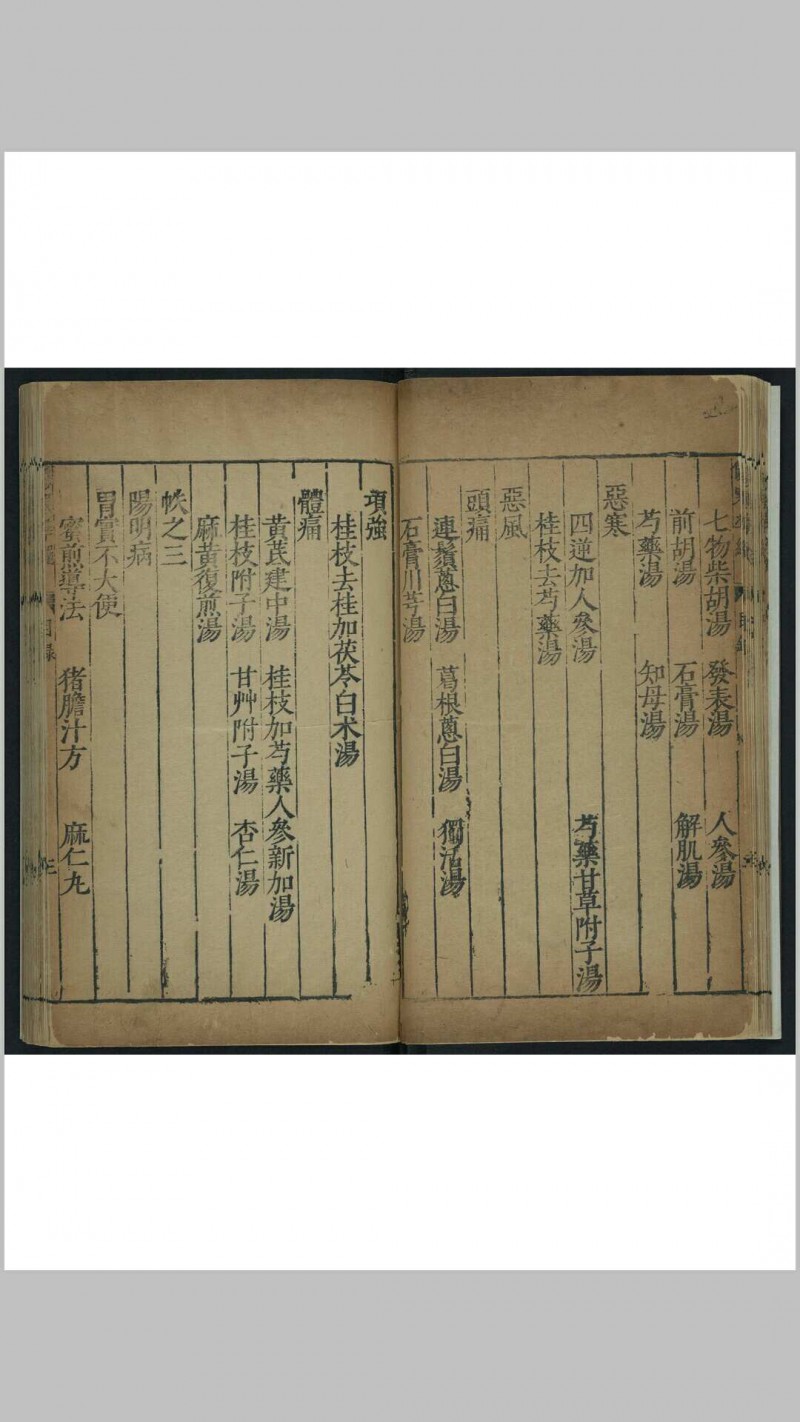 七物柴胡湯 發表湯 人參湯
前胡湯 石膏湯 解肌湯
芍藥湯 知母湯
惡寒
四逆加人參湯 芍藥甘草附子湯
桂枝去芍藥湯
惡風
頭痛
連鬚蔥白湯 葛根蔥白湯 獨活湯
石膏川芎湯
項強
桂枝去桂加茯苓白术湯
體痛
黃芪建中湯 桂枝加芍藥人參新加湯
桂枝附子湯 甘艸附子湯 杏仁湯
麻黃復煎湯
帙之三
陽明病
胃實不大便
蜜煎導法 猪膽汁方 麻仁丸
目錄